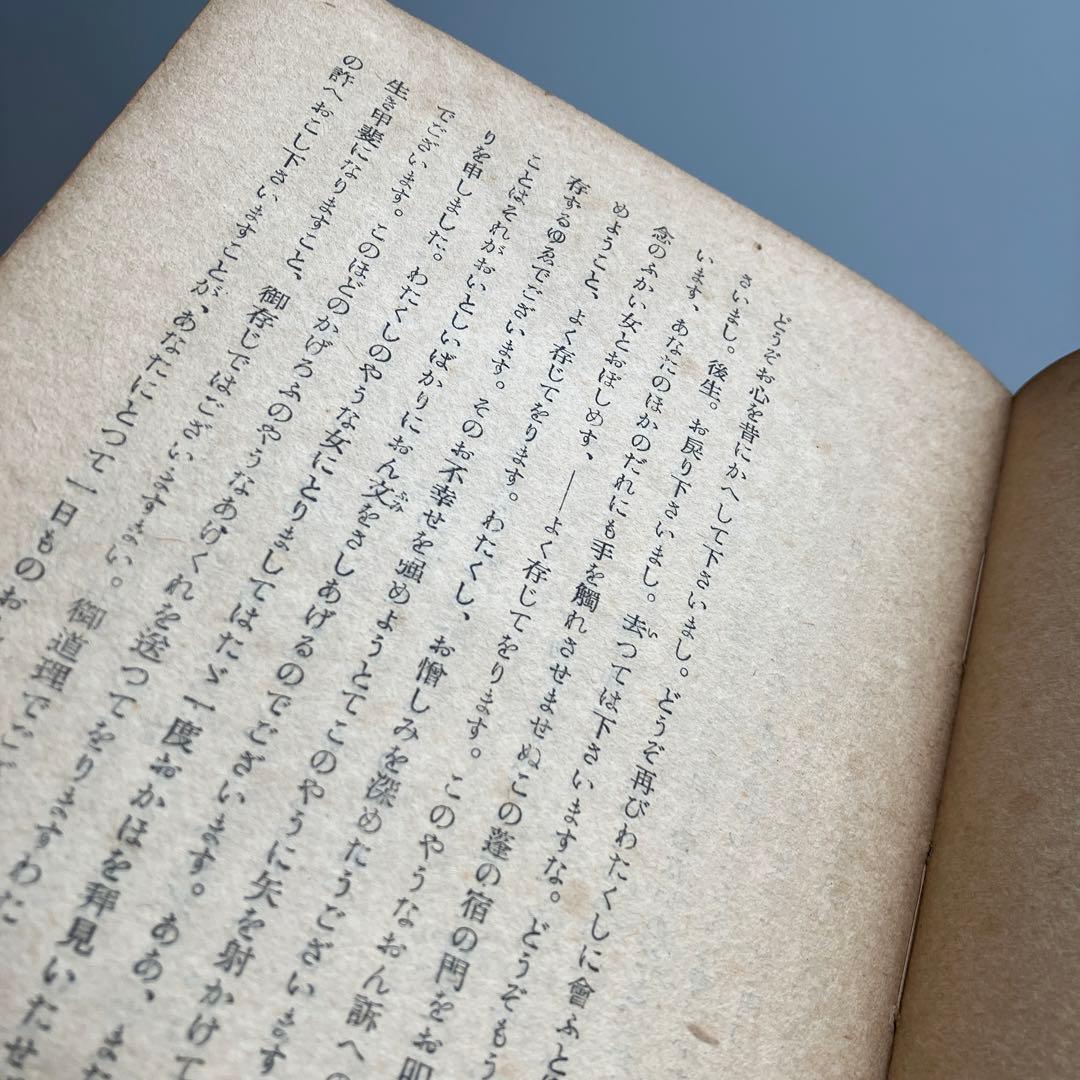 どうぞお心を昔にかへして下さいまし。どうぞ再びわたくしに會ふと
さいまし。後生。お戻り下さいまし。去つては下さいますな。どうぞもう
います、あなたのほかのだれにも手を觸れさせませぬこの蓬の宿の門をお叩
念のふかい女とおぼしめす、――よく存じてをります。このやうなおん訴への
めようこと、よく存じてをります。わたくし、お憎しみを深めたうございます
存するゆゑでございます。そのお不幸せを强めようとてこのやうに矢を射かけて
ことはそれがおいとしいばかりにおん文をさしあげるのでございます。ああ、また
りを申しました。わたくしのやうな女にとりましてはたゞ一度おかほを拜見いたせ
でございます。このほどのかげろふのやうなあけくれを送つてをりますわた
生き甲斐になりますこと、御存じではございますまい。御道理でご
の許へおこし下さいますことが、あなたにとつて一日ものお